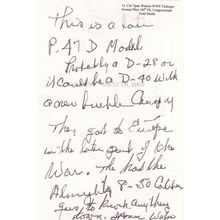 Lt. Col. Spann Watson WWII Tuskegee
Airman Pilot 100th Ftr. Congressional
Gold Medal
This is a
P-47 D Model
Probably a D-28 or
it could be a D-40 with
a new bubble Canopy
They got to Europe
in the later part of the
War. The had the
Almighty 8-50 Caliber
guns to knock anything
down. Spann Watson